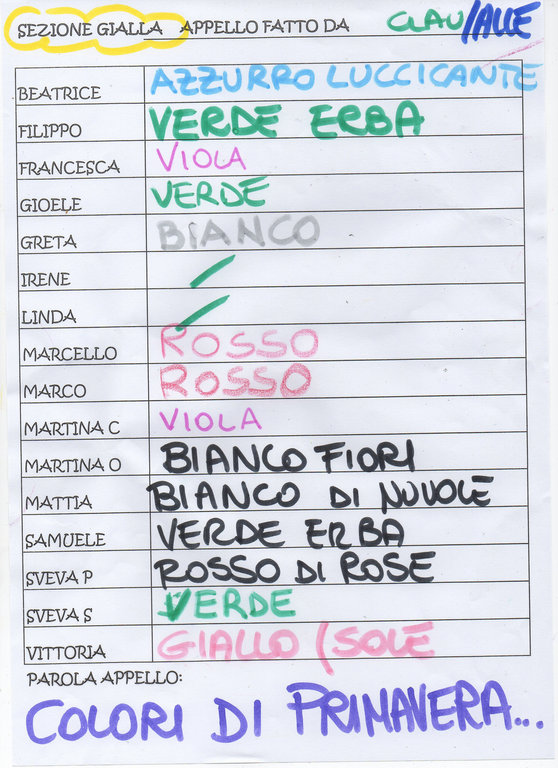 SEZIONE GIALLA APPELLO FATTO DA CLAU/ALLE
BEATRICE AZZURRO LUCCICANTE
FILIPPO VERDE ERBA
FRANCESCA VIOLA
GIOELE VERDE
GRETA BIANCO
IRENE
LINDA
MARCELLO ROSSO
MARCO ROSSO
MARTINA C VIOLA
MARTINA O BIANCO FIORI
MATTIA BIANCO DI NUVOLE
SAMUELE VERDE ERBA
SVEVA P ROSSO DI ROSE
SVEVA S VERDE
VITTORIA GIALLO (SOLE
PAROLA APPELLO:
COLORI DI PRIMAVERA...